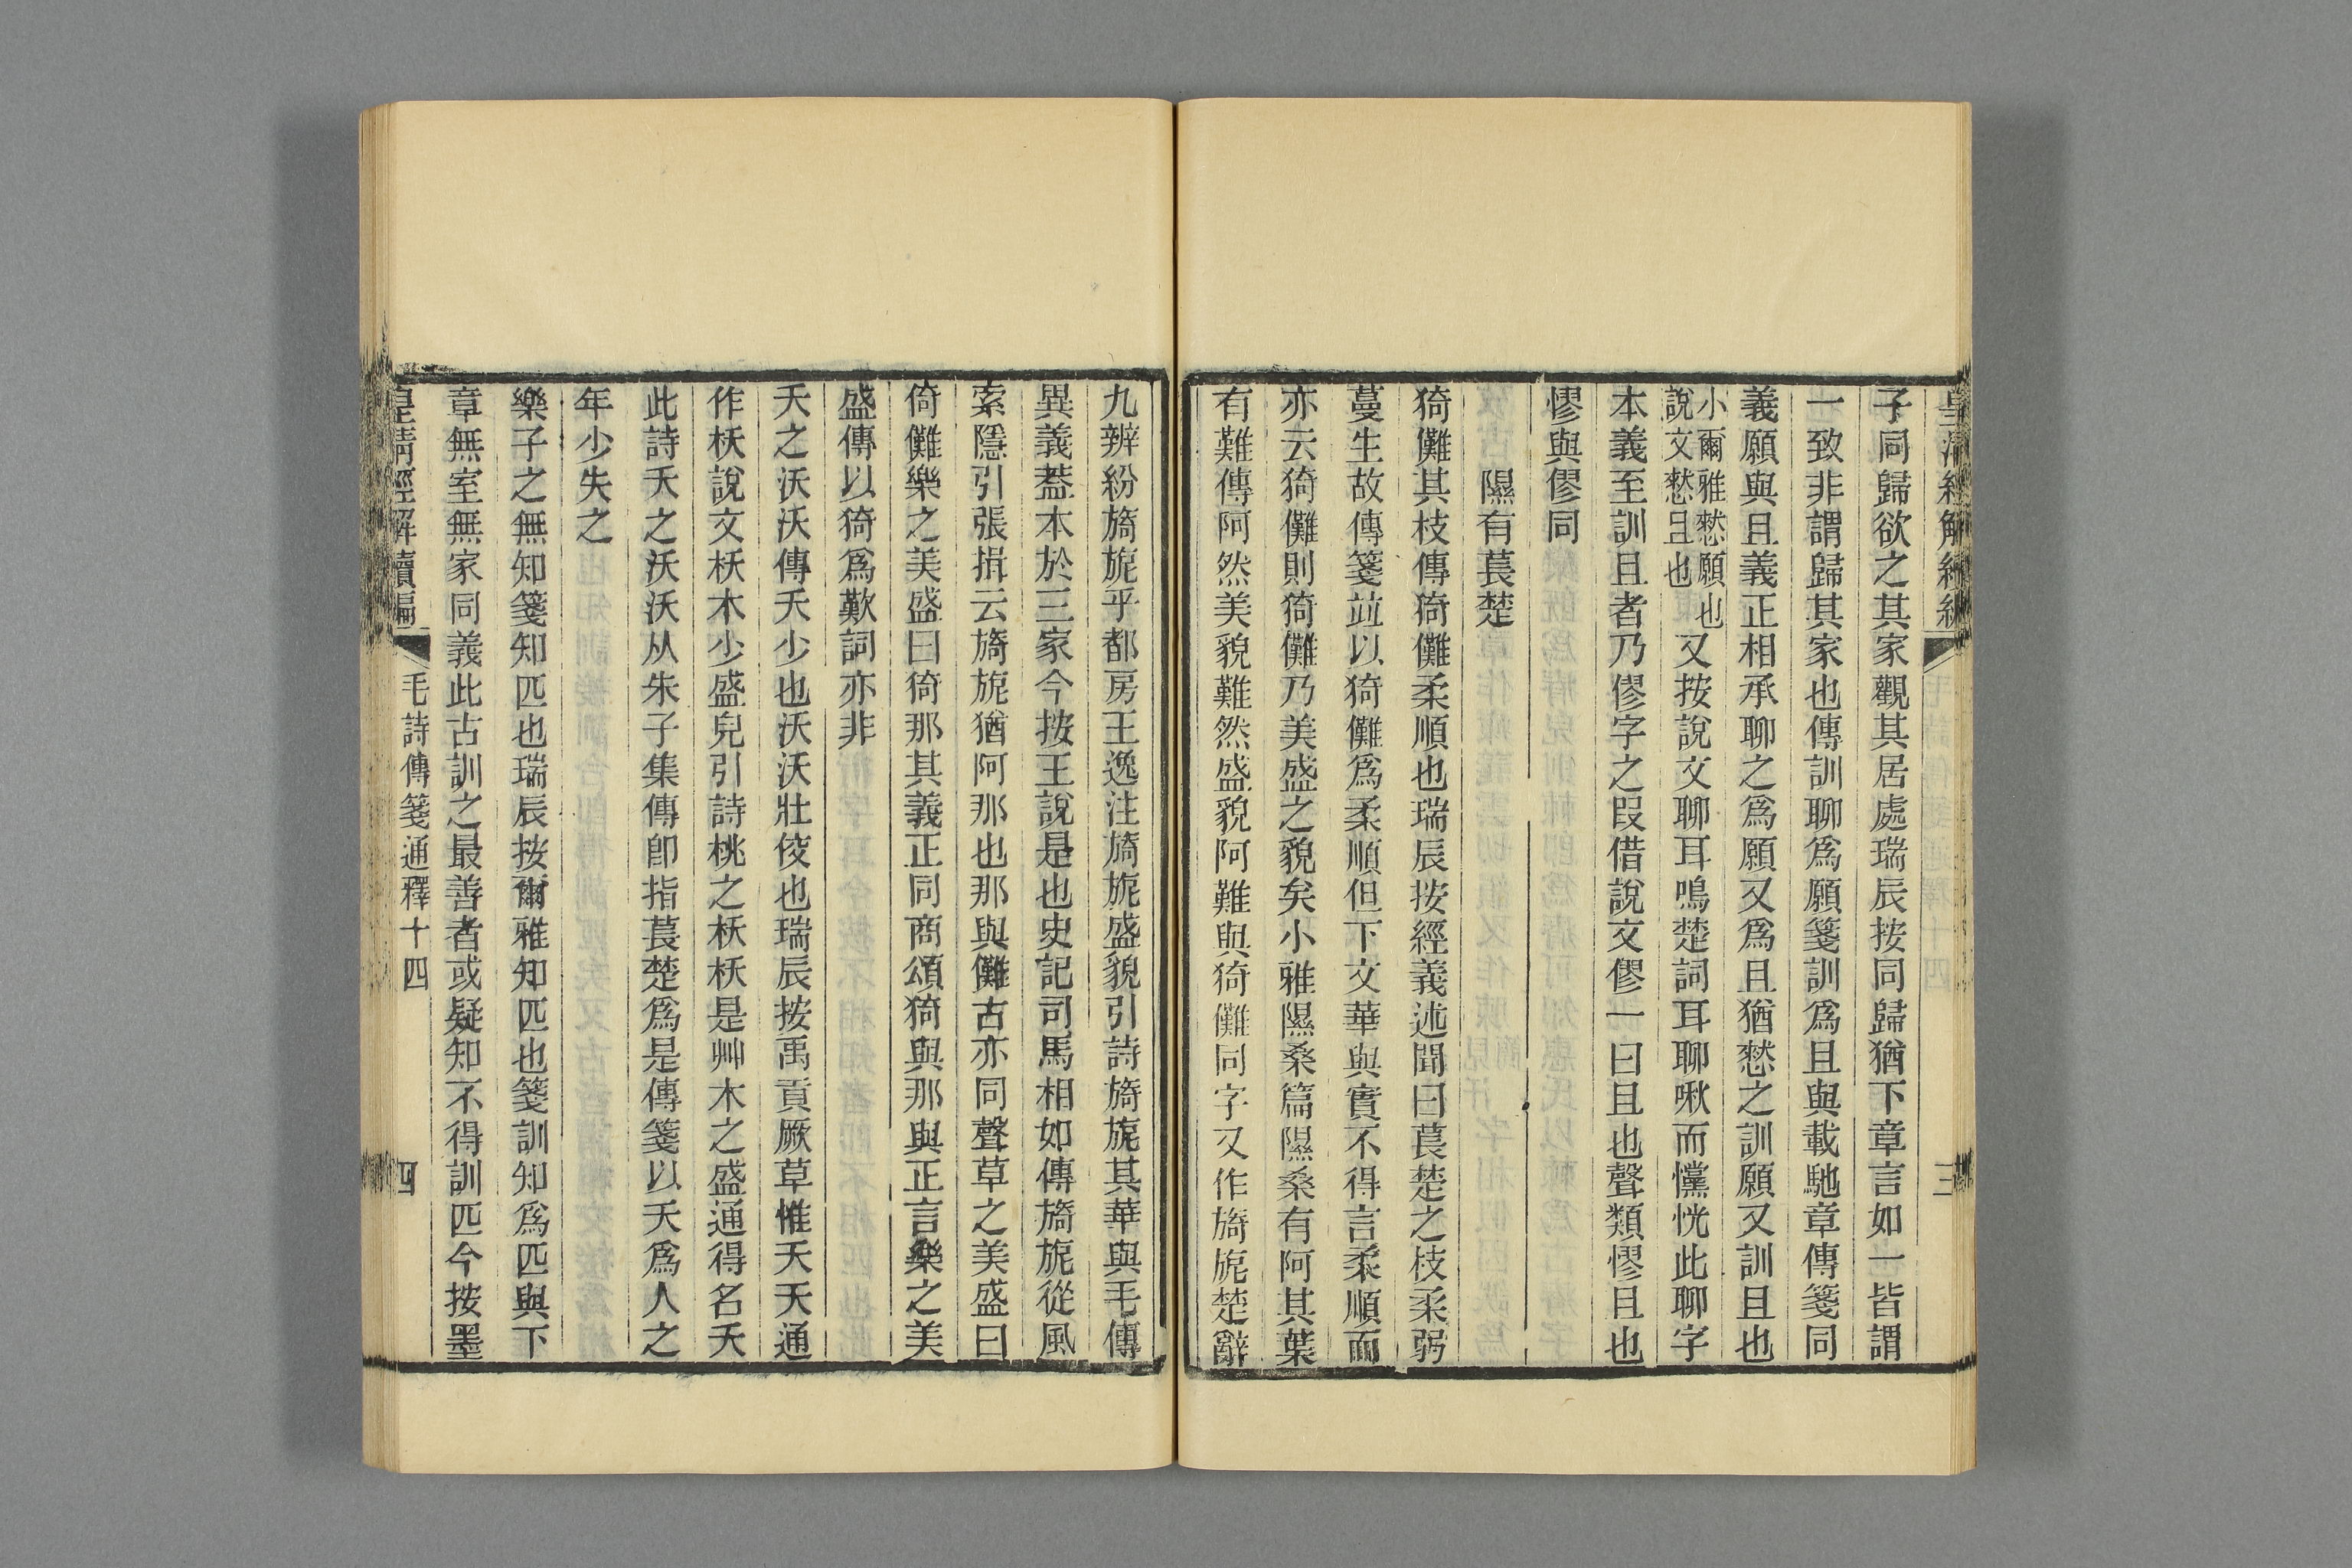 子同歸欲之其家觀其居處瑞辰按同歸猶下章言如一皆謂
一致非謂歸其家也傳訓聊爲願箋訓爲且與載馳章傳箋同
義願與且義正相承聊之爲願又爲且猶憖之訓願又訓且也
小爾雅憖願也
說文憖且也
又按說文聊耳鳴楚詞耳聊啾而戃恍此聊字
本義至訓且者乃僇字之叚借說文僇一曰且也聲類憀且也
憀與僇同
隰有萇楚
猗儺其枝傳猗儺柔順也瑞辰按經義述聞曰萇楚之枝柔弱
蔓生故傳箋竝以猗儺爲柔順但下文華與實不得言柔順而
亦云猗儺則猗儺乃美盛之貌矣小雅隰桑篇隰桑有阿其葉
有難傳阿然美貌難然盛貌阿難與猗儺同字又作旖旎楚辭
九辨紛旖旎乎都房王逸注旖旎盛貌引詩旖旎其華與毛傳
異義葢本於三家今按王說是也史記司馬相如傳旖旎從風
索隱引張揖云旖旎猶阿那也那與儺古亦同聲草之美盛曰
倚儺樂之美盛曰猗那其義正同商頌猗與那與正言樂之美
盛傳以猗爲歎詞亦非
夭之沃沃傳夭少也沃沃壯佼也瑞辰按禹貢厥草惟夭夭通
作枖說文枖木少盛皃引詩桃之枖枖是艸木之盛通得名夭
此詩夭之沃沃从朱子集傳卽指萇楚爲是傳箋以夭爲人之
年少失之
樂子之無知箋知匹也瑞辰按爾雅知匹也箋訓知爲匹與下
章無室無家同義此古訓之最善者或疑知不得訓匹今按墨
皇淸經解續編
毛詩傳箋通釋十四
四